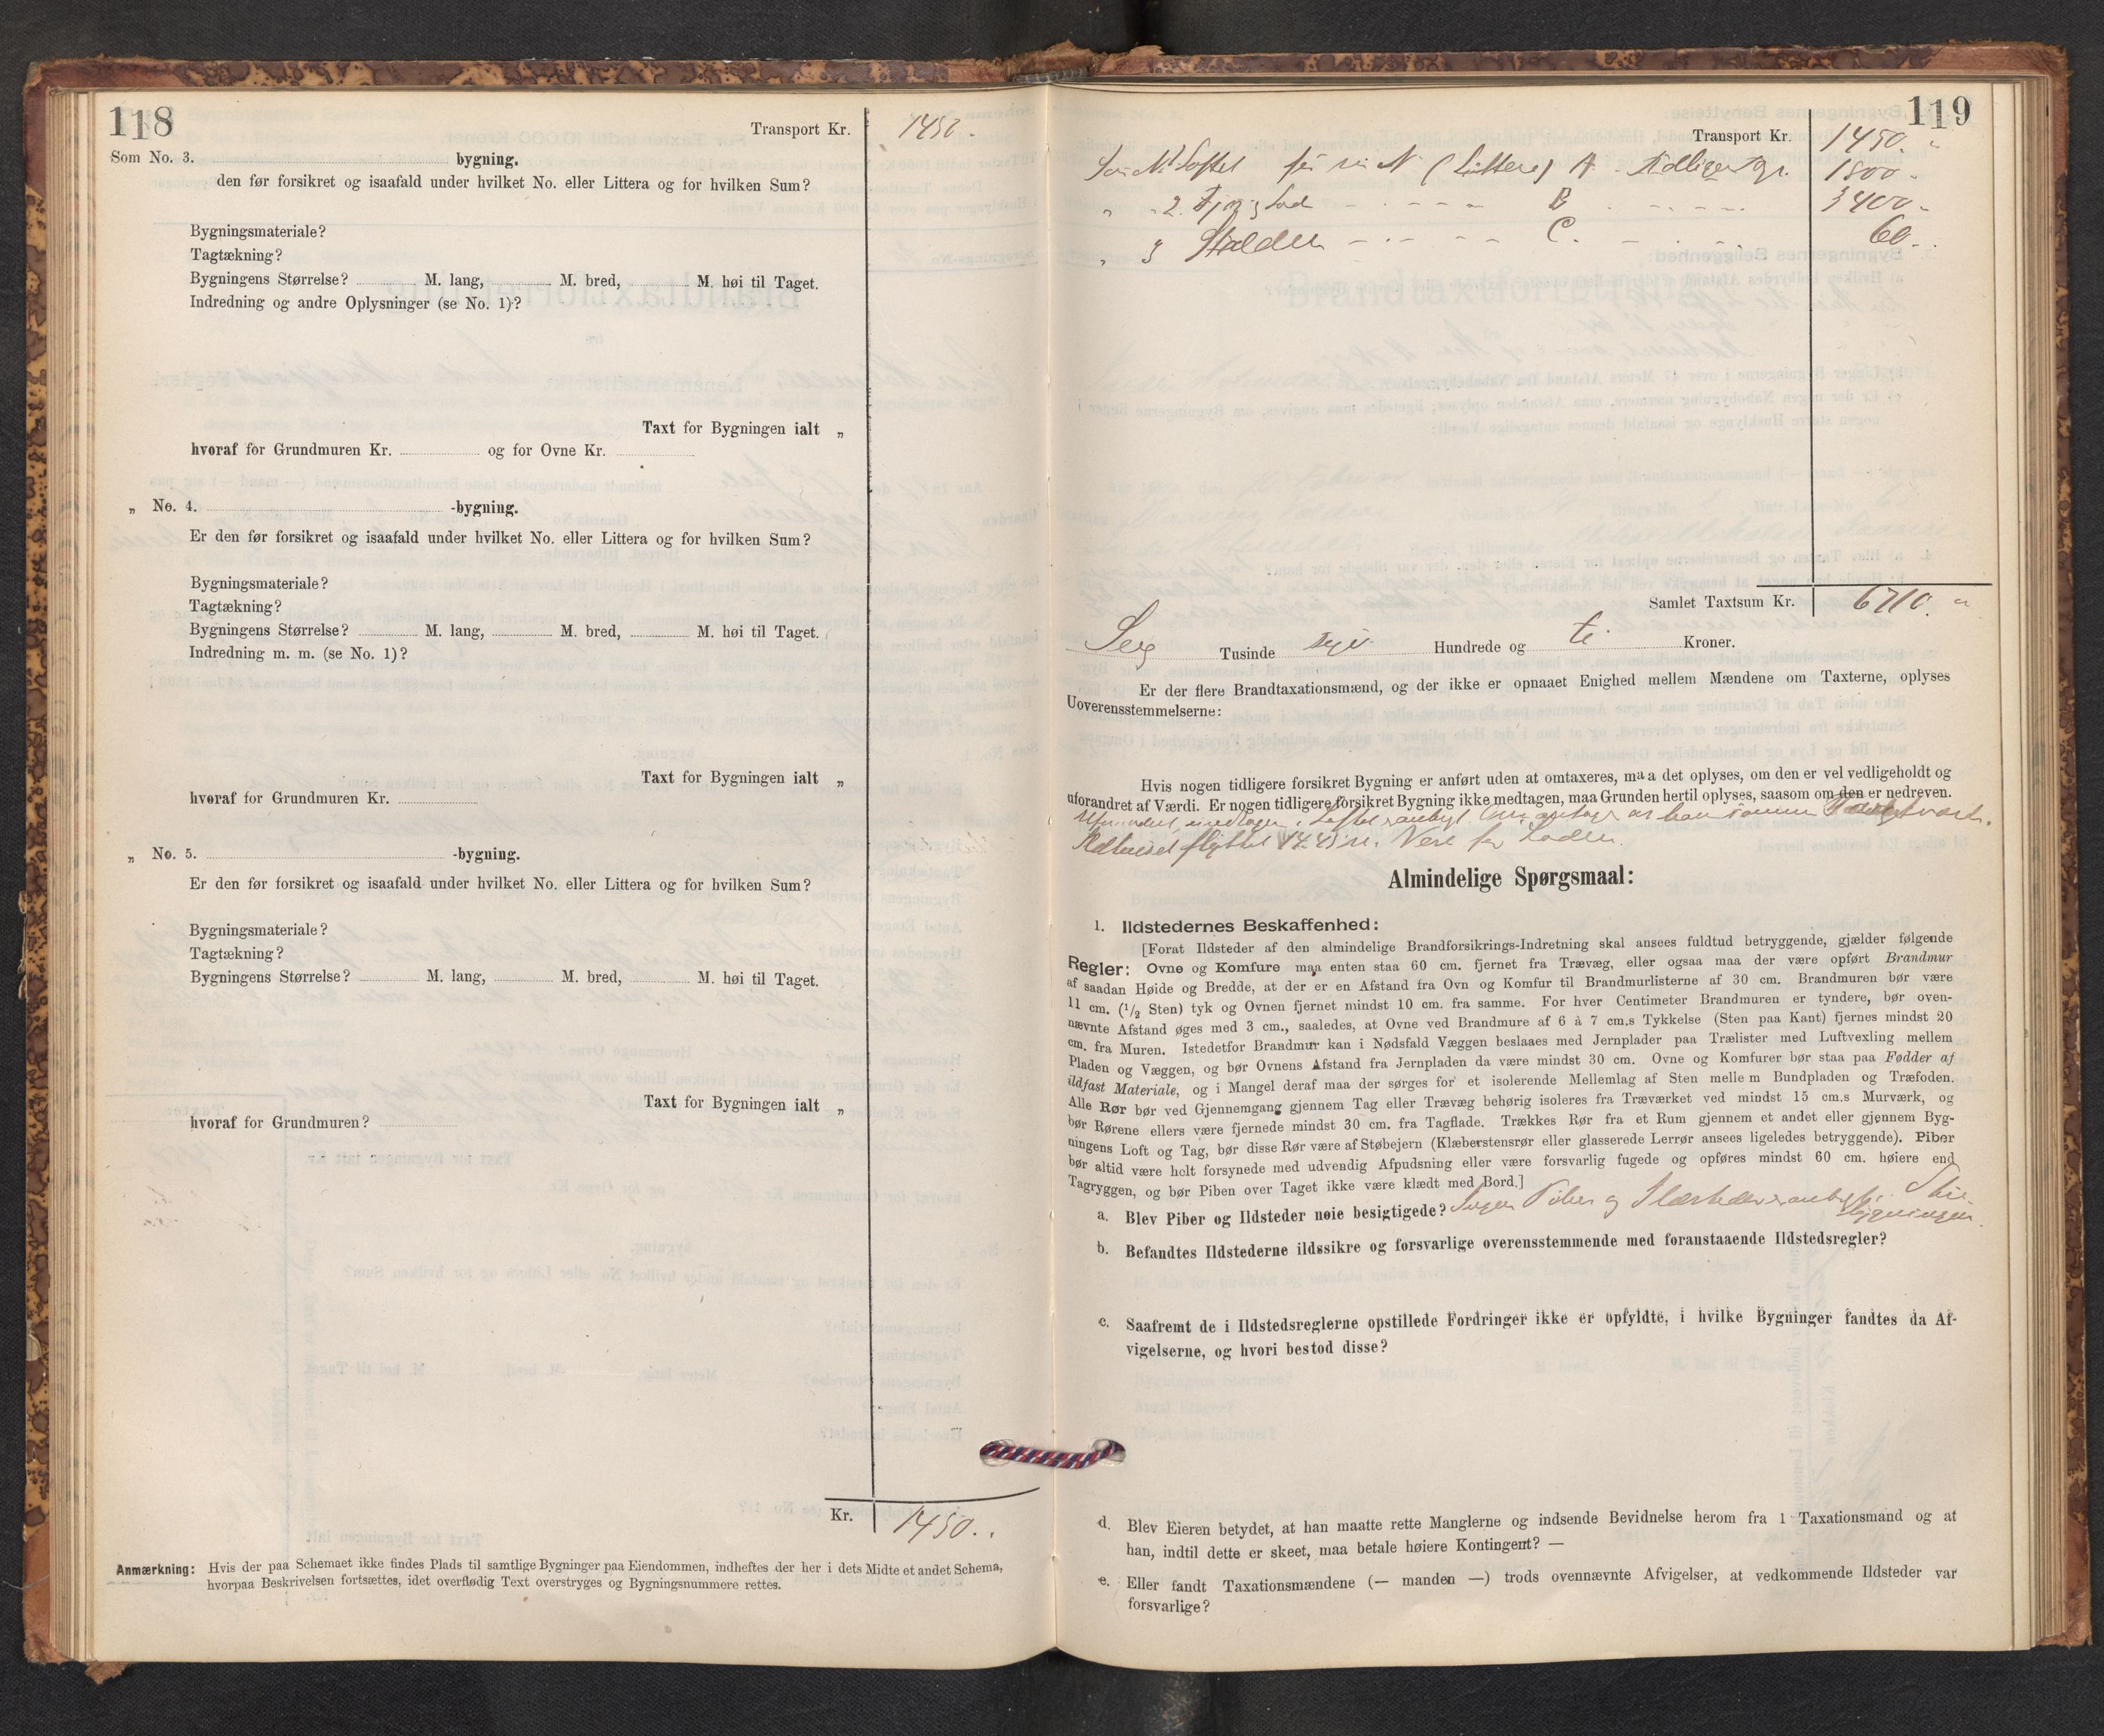 118
Transport Kr. 1450.
Som No. 3. bygning.
den før forsikret og isaafald under hvilket No. eller Littera og for hvilken Sum?
Bygningsmateriale?
Tagtækning?
Bygningens Størrelse? M. lang, M. bred, M. høi til Taget.
Indredning og andre Oplysninger (se No. 1)?
Taxt for Bygningen ialt „
hvoraf for Grundmuren Kr. og for Ovne Kr.
„ No. 4. -bygning.
Er den før forsikret og isaafald under hvilket No. eller Littera og for hvilken Sum?
Bygningsmateriale?
Tagtækning?
Bygningens Størrelse? M. lang, M. bred, M. høi til Taget.
Indredning m. m. (se No. 1)?
Taxt for Bygningen ialt „
hvoraf for Grundmuren Kr.
„ No. 5. -bygning.
Er den før forsikret og isaafald under hvilket No. eller Littera og for hvilken Sum?
Bygningsmateriale?
Tagtækning?
Bygningens Størrelse? M. lang, M. bred, M. høi til Taget.
Taxt for Bygningen ialt „
hvoraf for Grundmuren?
Kr. 1450.
Anmærkning: Hvis der paa Schemaet ikke findes Plads til samtlige Bygninger paa Eiendommen, indheftes der her i dets Midte et andet Schema,
hvorpaa Beskrivelsen fortsættes, idet overflødig Text overstryges og Bygningsnummere rettes.
119
Transport Kr. 1450.
(Littera) A 1800.
" 2. B 3400.
" 3 Stalden C. 60.
Samlet Taxtsum Kr. 6710.
Sex Tusinde syv Hundrede og ti Kroner.
Er der flere Brandtaxationsmænd, og der ikke er opnaaet Enighed mellem Mændene om Taxterne, oplyses
Uoverensstemmelserne:
Hvis nogen tidligere forsikret Bygning er anført uden at omtaxeres, maa det oplyses, om den er vel vedligeholdt og
uforandret af Værdi. Er nogen tidligere forsikret Bygning ikke medtagen, maa Grunden hertil oplyses, saasom om den er nedreven.
Ildhuset flyttet for Laden.
Almindelige Spørgsmaal:
1. Ildstedernes Beskaffenhed:
[Forat Ildsteder af den almindelige Brandforsikrings-Indretning skal ansees fuldtud betryggende, gjælder følgende
Regler: Ovne og Komfure maa enten staa 60 cm. fjernet fra Trævæg, eller ogsaa maa der være opført Brandmur
af saadan Høide og Bredde, at der er en Afstand fra Ovn og Komfur til Brandmurlisterne af 30 cm. Brandmuren bør være
11 cm. (1/2 Sten) tyk og Ovnen fjernet mindst 10 cm. fra samme. For hver Centimeter Brandmuren er tyndere, bør oven-
nævnte Afstand øges med 3 cm., saaledes, at Ovne ved Brandmure af 6 à 7 cm.s Tykkelse (Sten paa Kant) fjernes mindst 20
cm. fra Muren. Istedetfor Brandmur kan i Nødsfald Væggen beslaaes med Jernplader paa Trælister med Luftvexling mellem
Pladen og Væggen, og bør Ovnens Afstand fra Jernpladen da være mindst 30 cm. Ovne og Komfurer bør staa paa Fødder af
ildfast Materiale, og i Mangel deraf maa der sørges for et isolerende Mellemlag af Sten mellem Bundpladen og Træfoden.
Alle Rør bør ved Gjennemgang gjennem Tag eller Trævæg behørig isoleres fra Træværket ved mindst 15 cm.s Murværk, og
bør Rørene ellers være fjernede mindst 30 cm. fra Tagflade. Trækkes Rør fra et Rum gjennem et andet eller gjennem Byg-
ningens Loft og Tag, bør disse Rør være af Støbejern (Klæberstensrør eller glasserede Lerrør ansees ligeledes betryggende). Piber
bør altid være holt forsynede med udvendig Afpudsning eller være forsvarlig fugede og opføres mindst 60 cm. høiere end
Tagryggen, og bør Piben over Taget ikke være klædt med Bord.]
a. Blev Piber og Ildsteder nøie besigtigede? Ingen Piber og
bygningen.
b. Befandtes Ildstederne ildssikre og forsvarlige overensstemmende med foranstaaende Ildstedsregler?
c. Saafremt de i Ildstedsreglerne opstillede Fordringer ikke er opfyldte, i hvilke Bygninger fandtes da Af-
vigelserne, og hvori bestod disse?
d. Blev Eieren betydet, at han maatte rette Manglerne og indsende Bevidnelse herom fra 1 Taxationsmand og at
han, indtil dette er skeet, maa betale høiere Kontingent? —
e. Eller fandt Taxationsmændene (— manden —) trods ovennævnte Afvigelser, at vedkommende Ildsteder var
forsvarlige?